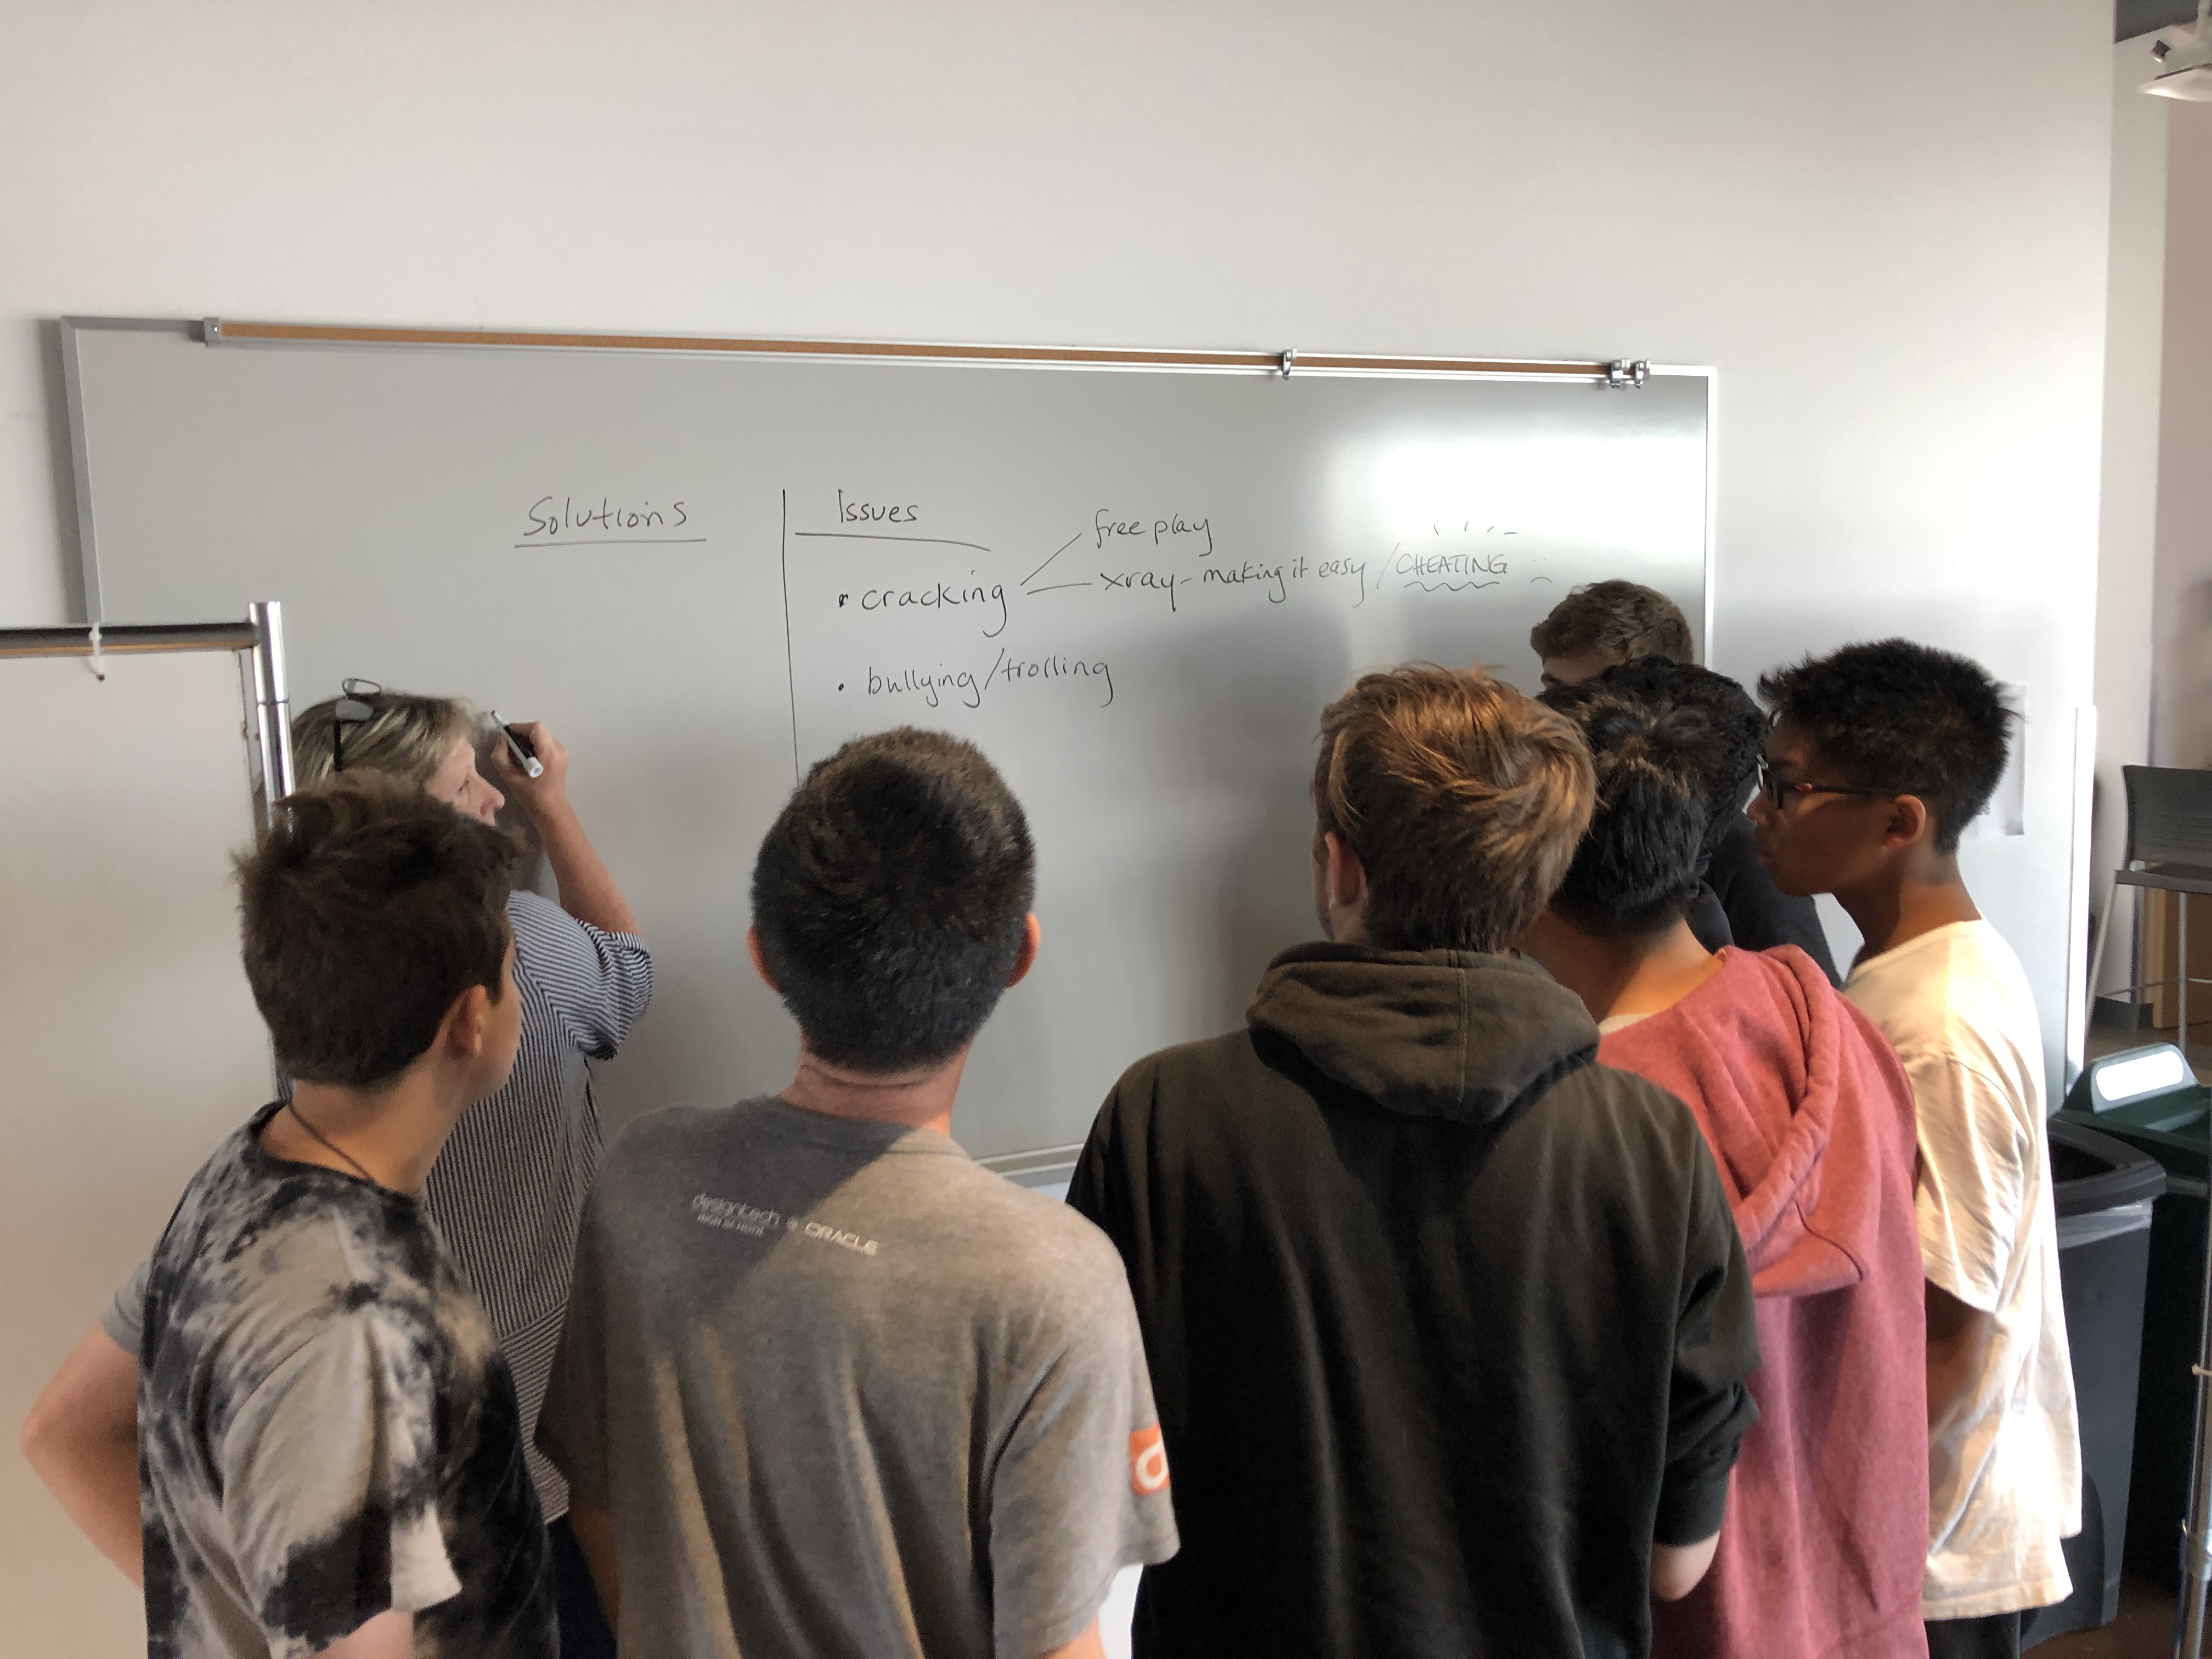 Solutions
Issues
• cracking
free play
xray - making it easy / CHEATING
• bullying/trolling
designtech @ ORACLE
HIGH SCHOOL